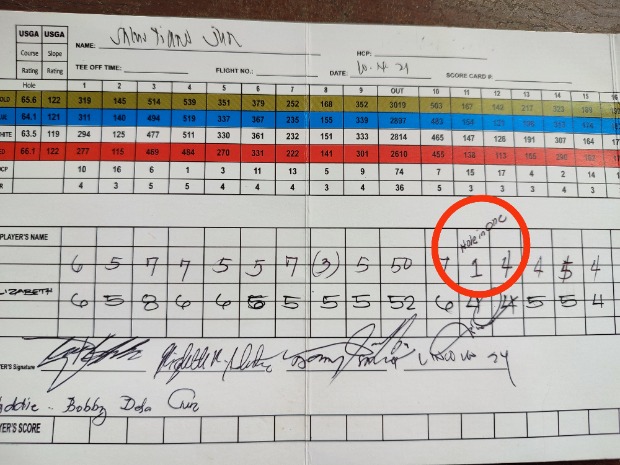 USGA USGA
Course Slope
Rating Rating
NAME:
HCP:
TEE OFF TIME: FLIGHT NO.: DATE: SCORE CARD #:
Hole 1 2 3 4 5 6 7 8 9 OUT 10 11 12 13 14 15 16
OLD 65.6 122 319 145 514 539 351 379 252 168 352 3019 503 167
UE 64.1 121 311 140 494 519 337 367 235 155 339 2897 483
HITE 63.5 119 294 125 477 511 330 361 232 151 333 2814 465 147 126 191 307 164
ED 66.1 122 277 115 469 484 270 331 222 141 301 2610 455
CP 10 16 6 1 3 11 13 5 9 74 7 15 17 4 2 14
R 4 3 5 5 4 4 4 3 4 36 5 3 3 3 4 3
PLAYER'S NAME
Hole in One
6 5 7 7 5 5 7 (3) 5 50 7 1 4 4 5 4
LIZABETH 6 5 8 6 6 6 5 5 5 52 6 4 4 5 5 4
ER'S Signature
addie - Bobby Dela Cruz
YER'S SCORE